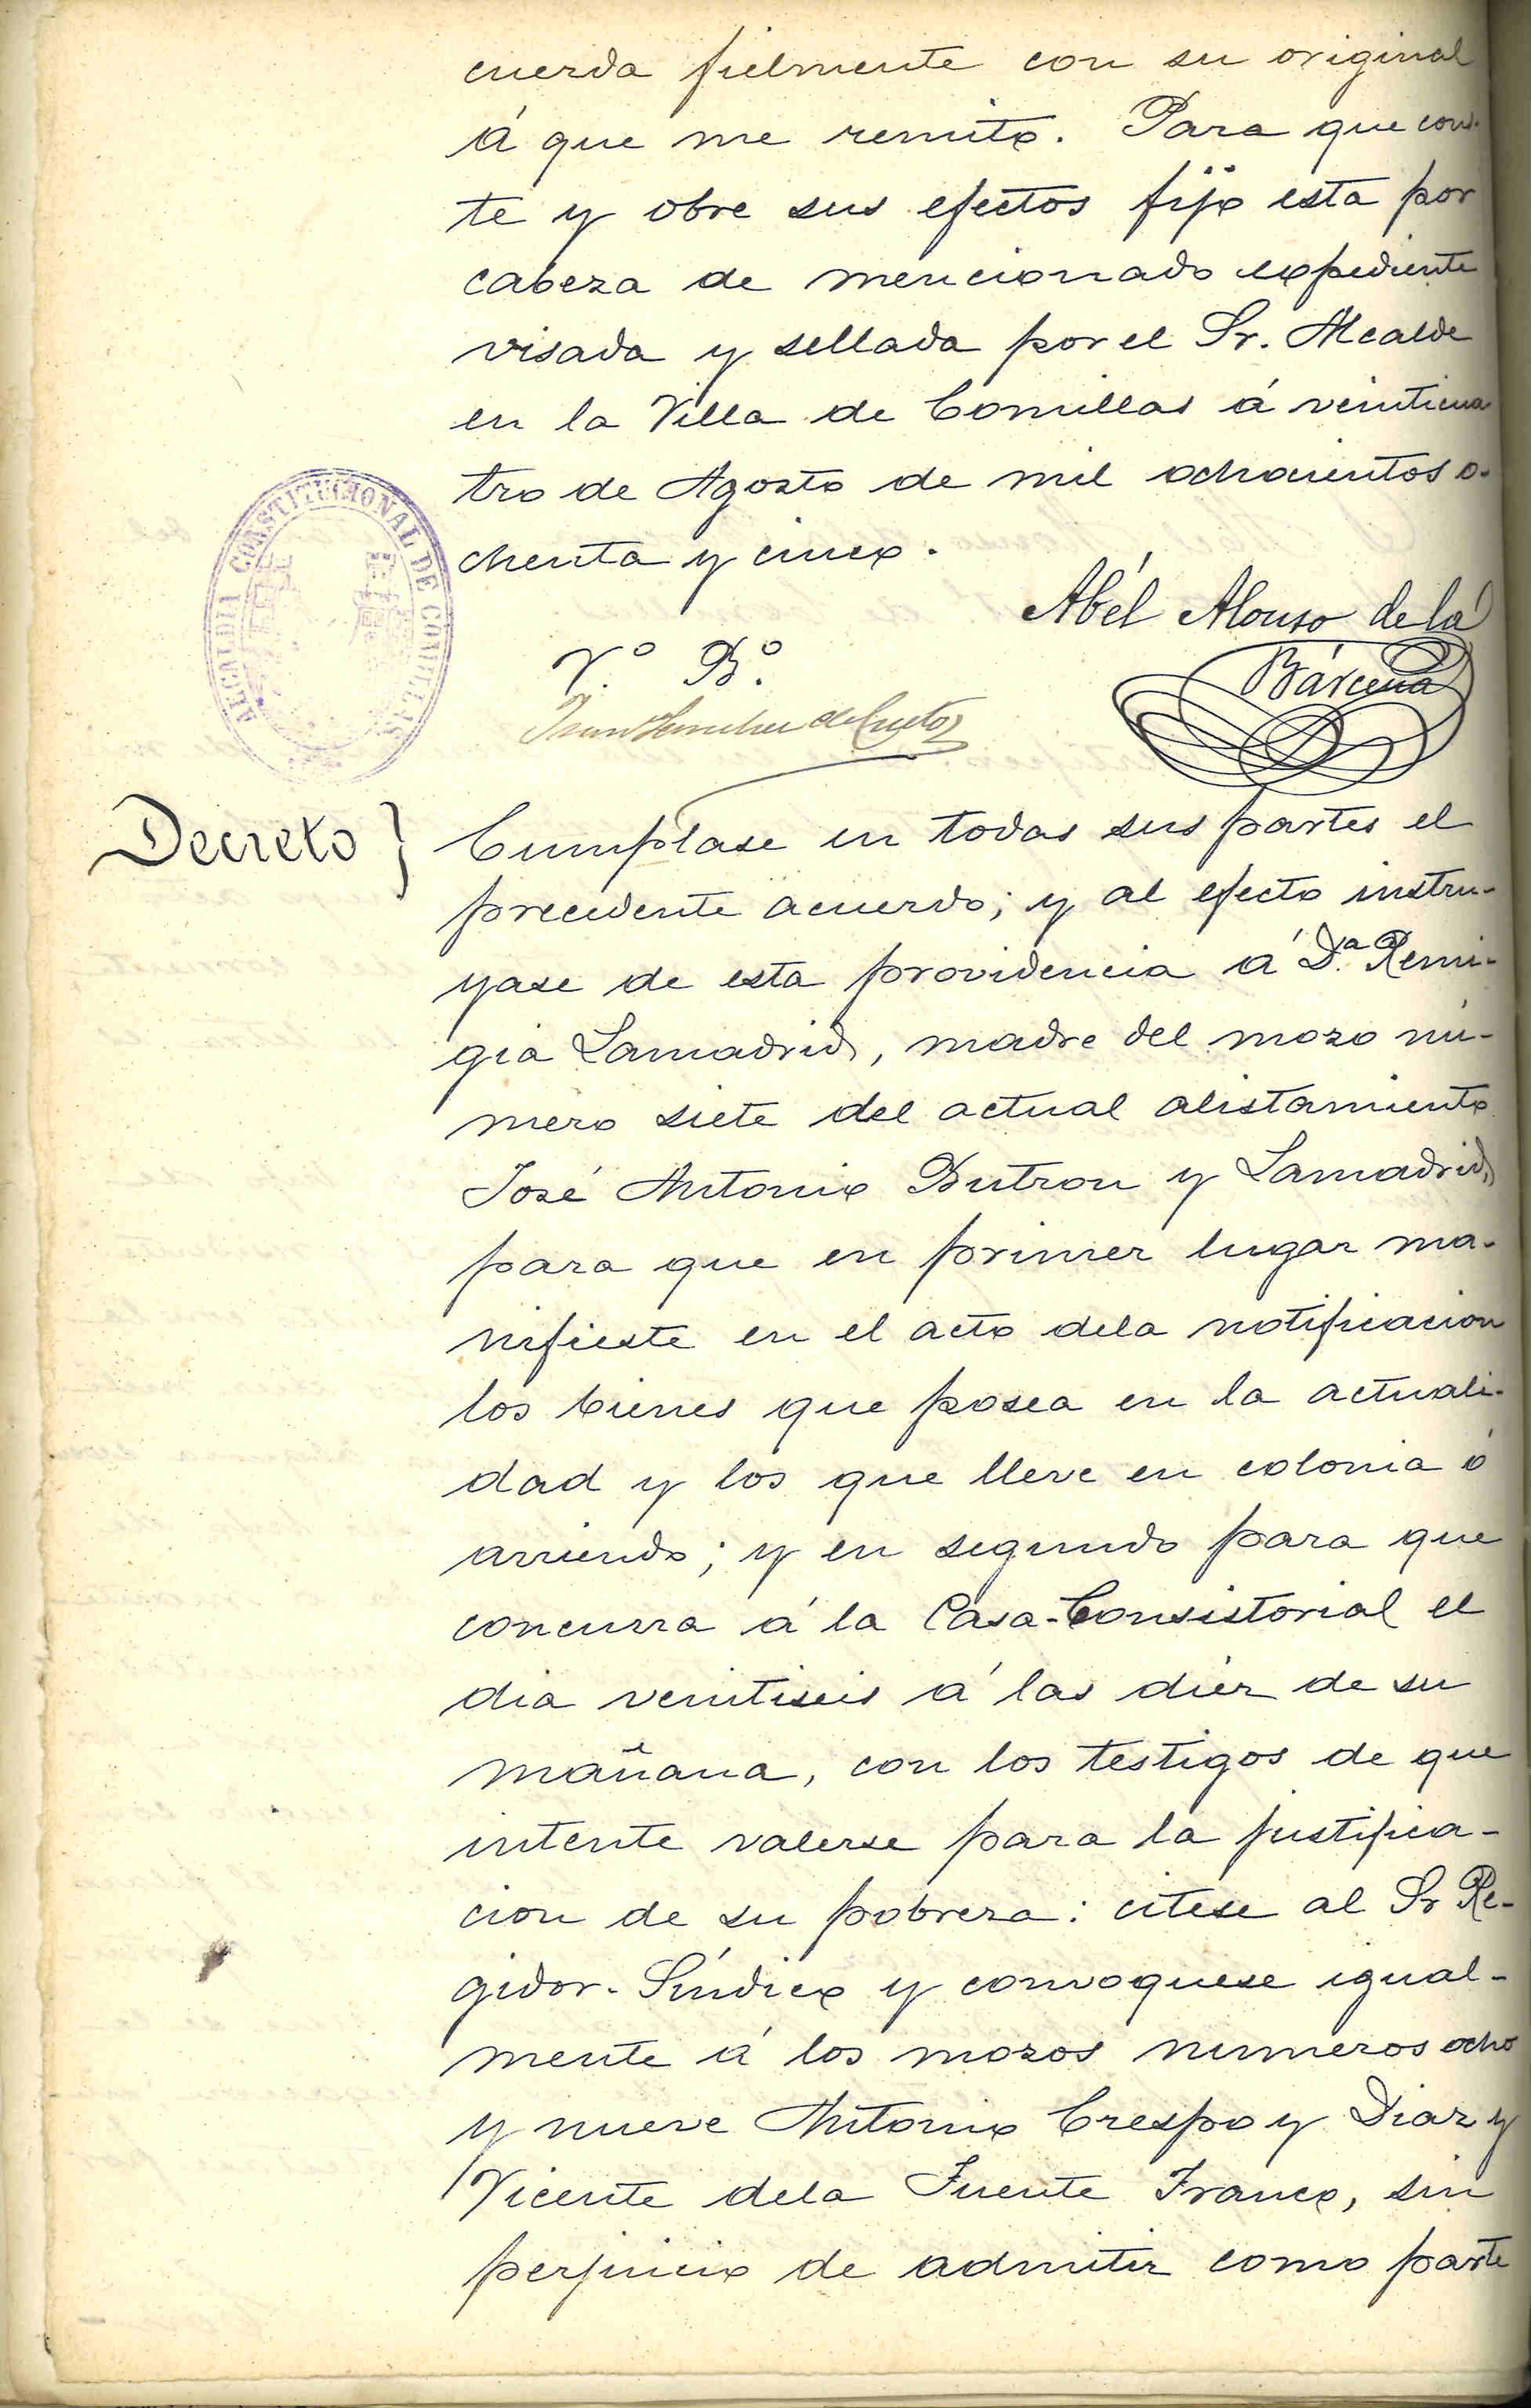 cuerda fielmente con su original
á que me remito. Para que cons-
te y obre sus efectos fijo esta por
cabeza de mencionado expediente
visada y sellada por el Sr. Alcalde
en la Villa de Comillas á veinticua
tro de Agosto de mil ochocientos o-
chenta y cinco.
ALCALDIA CONSTITUCIONAL DE COMILLAS
Abél Alonso de la
Bárcena
V.º B.º
Juan Sanchez de Cueto
Decreto }
Cumplase en todas sus partes el
precedente acuerdo; y al efecto instru-
yase de esta providencia á D.ª Remi-
gia Lamadrid, madre del mozo nú-
mero siete del actual alistamiento
José Antonio Butron y Lamadrid,
para que en primer lugar ma-
nifieste en el acto dela notificacion
los bienes que posea en la actuali-
dad y los que lleve en colonia ó
arriendo; y en segundo para que
concurra á la Casa-Consistorial el
dia veintiseis á las diéz de su
mañana, con los testigos de que
intente valerse para la justifica-
cion de su pobreza: citese al Sr Re-
gidor-Síndico y convoquese igual-
mente á los mozos numeros ocho
y nueve Antonio Crespo y Diaz y
Vicente dela Fuente Franco, sin
perjuicio de admitir como parte